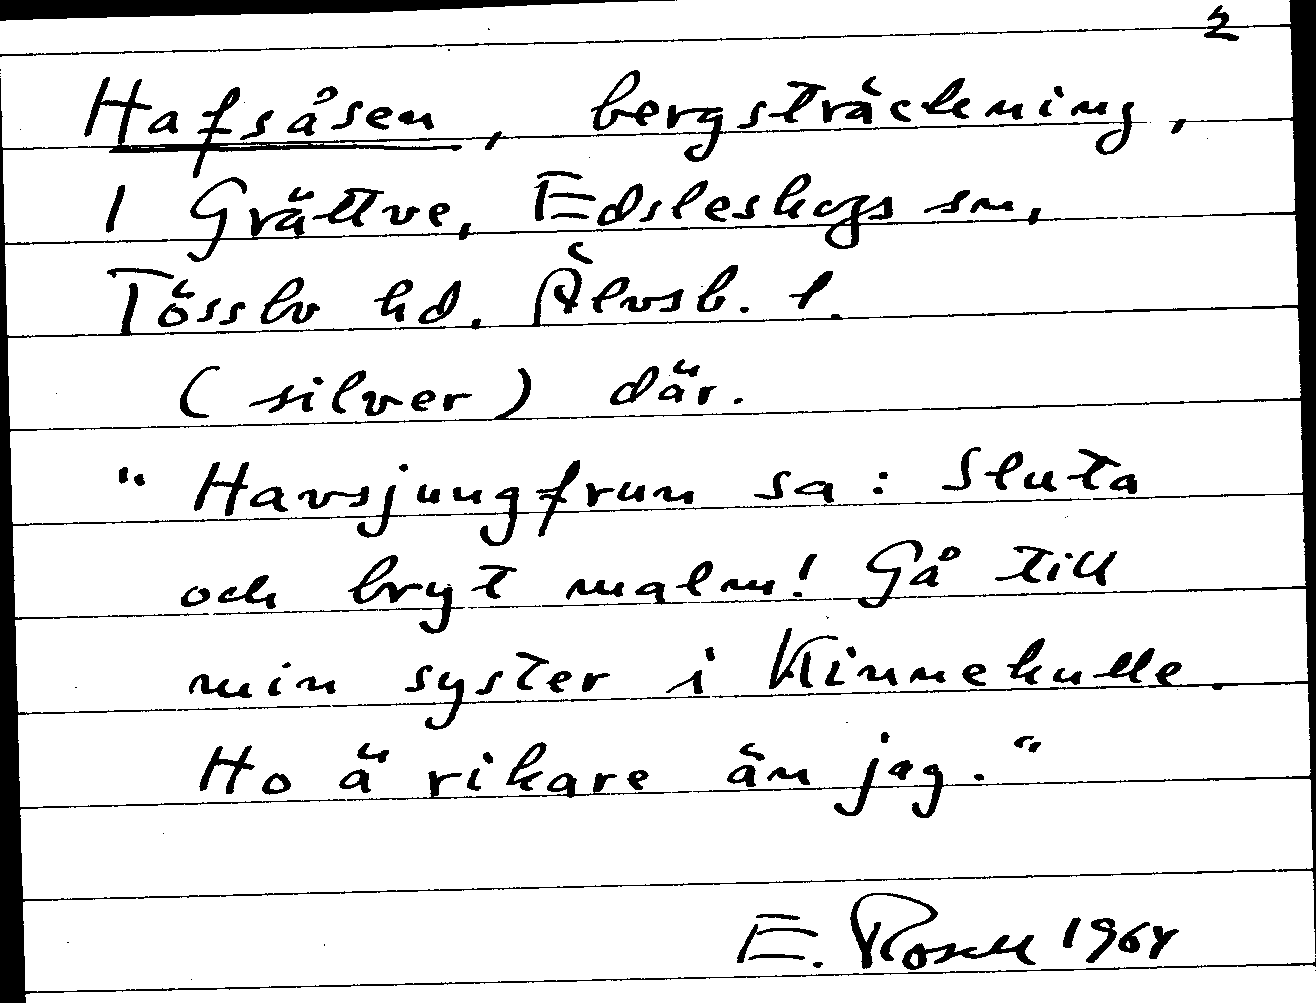 2
Hafsåsen, bergsträckning,
1 Grättve, Edsleskogs sn,
Tössbo hd. Älvsb. l.
(silver) där.
"Havsjungfrun sa: Sluta
och bryt malm! Gå till
min syster i Kinnekulle.
Ho ä rikare än jag."
E. Rosell 1964